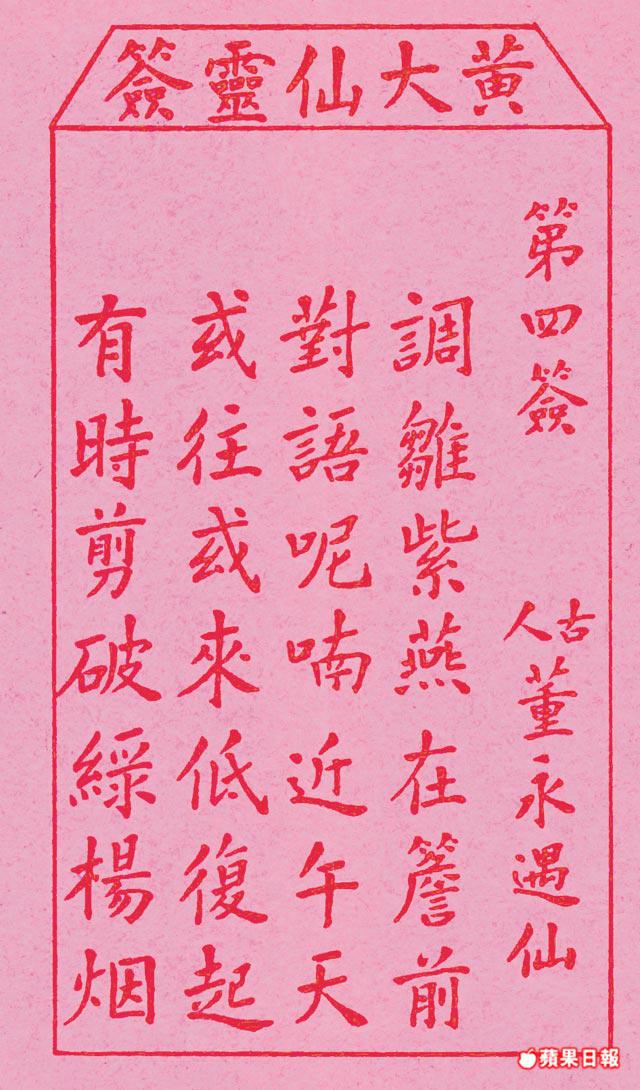 黃大仙靈簽
第四簽
古人董永遇仙
調雛紫燕在簷前
對語呢喃近午天
或往或來低復起
有時剪破綠楊烟
蘋果日報